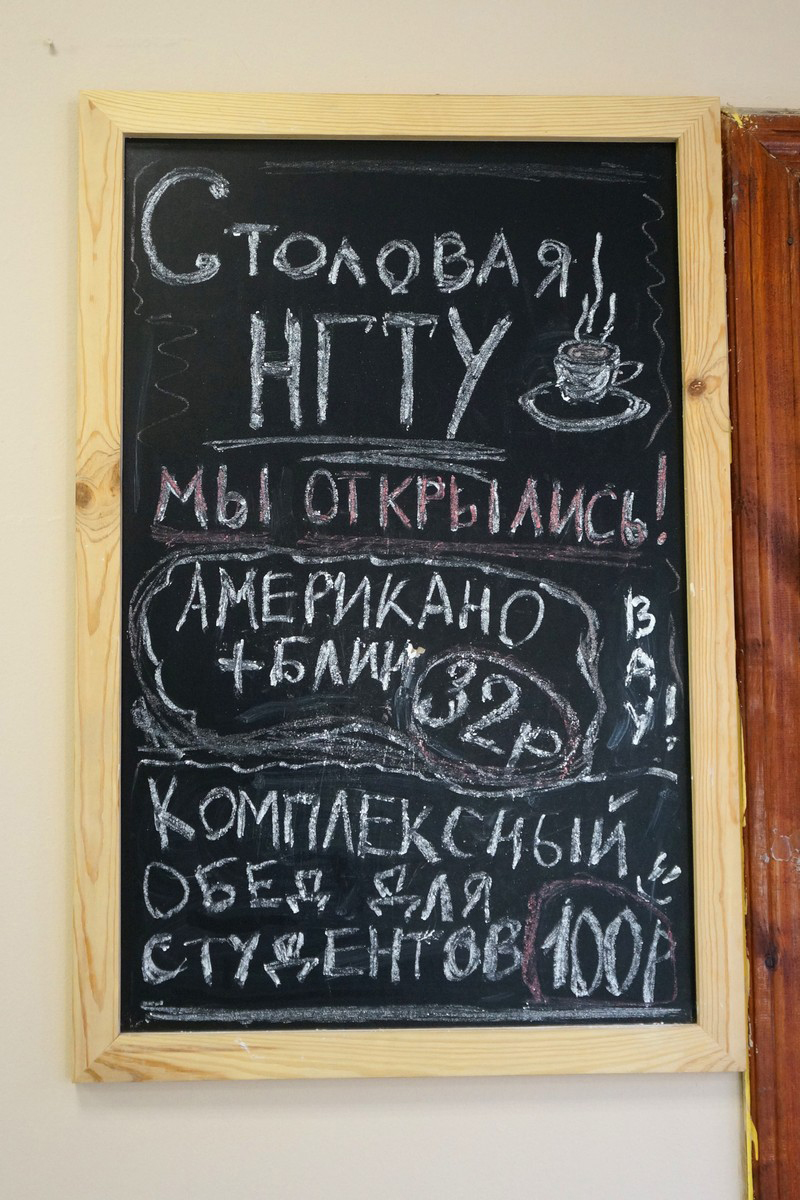 Столовая
НГТУ
МЫ ОТКРЫЛИСЬ!
АМЕРИКАНО
+БЛИН 32р
ВАУ!
КОМПЛЕКСНЫЙ
ОБЕД ДЛЯ
СТУДЕНТОВ 100Р